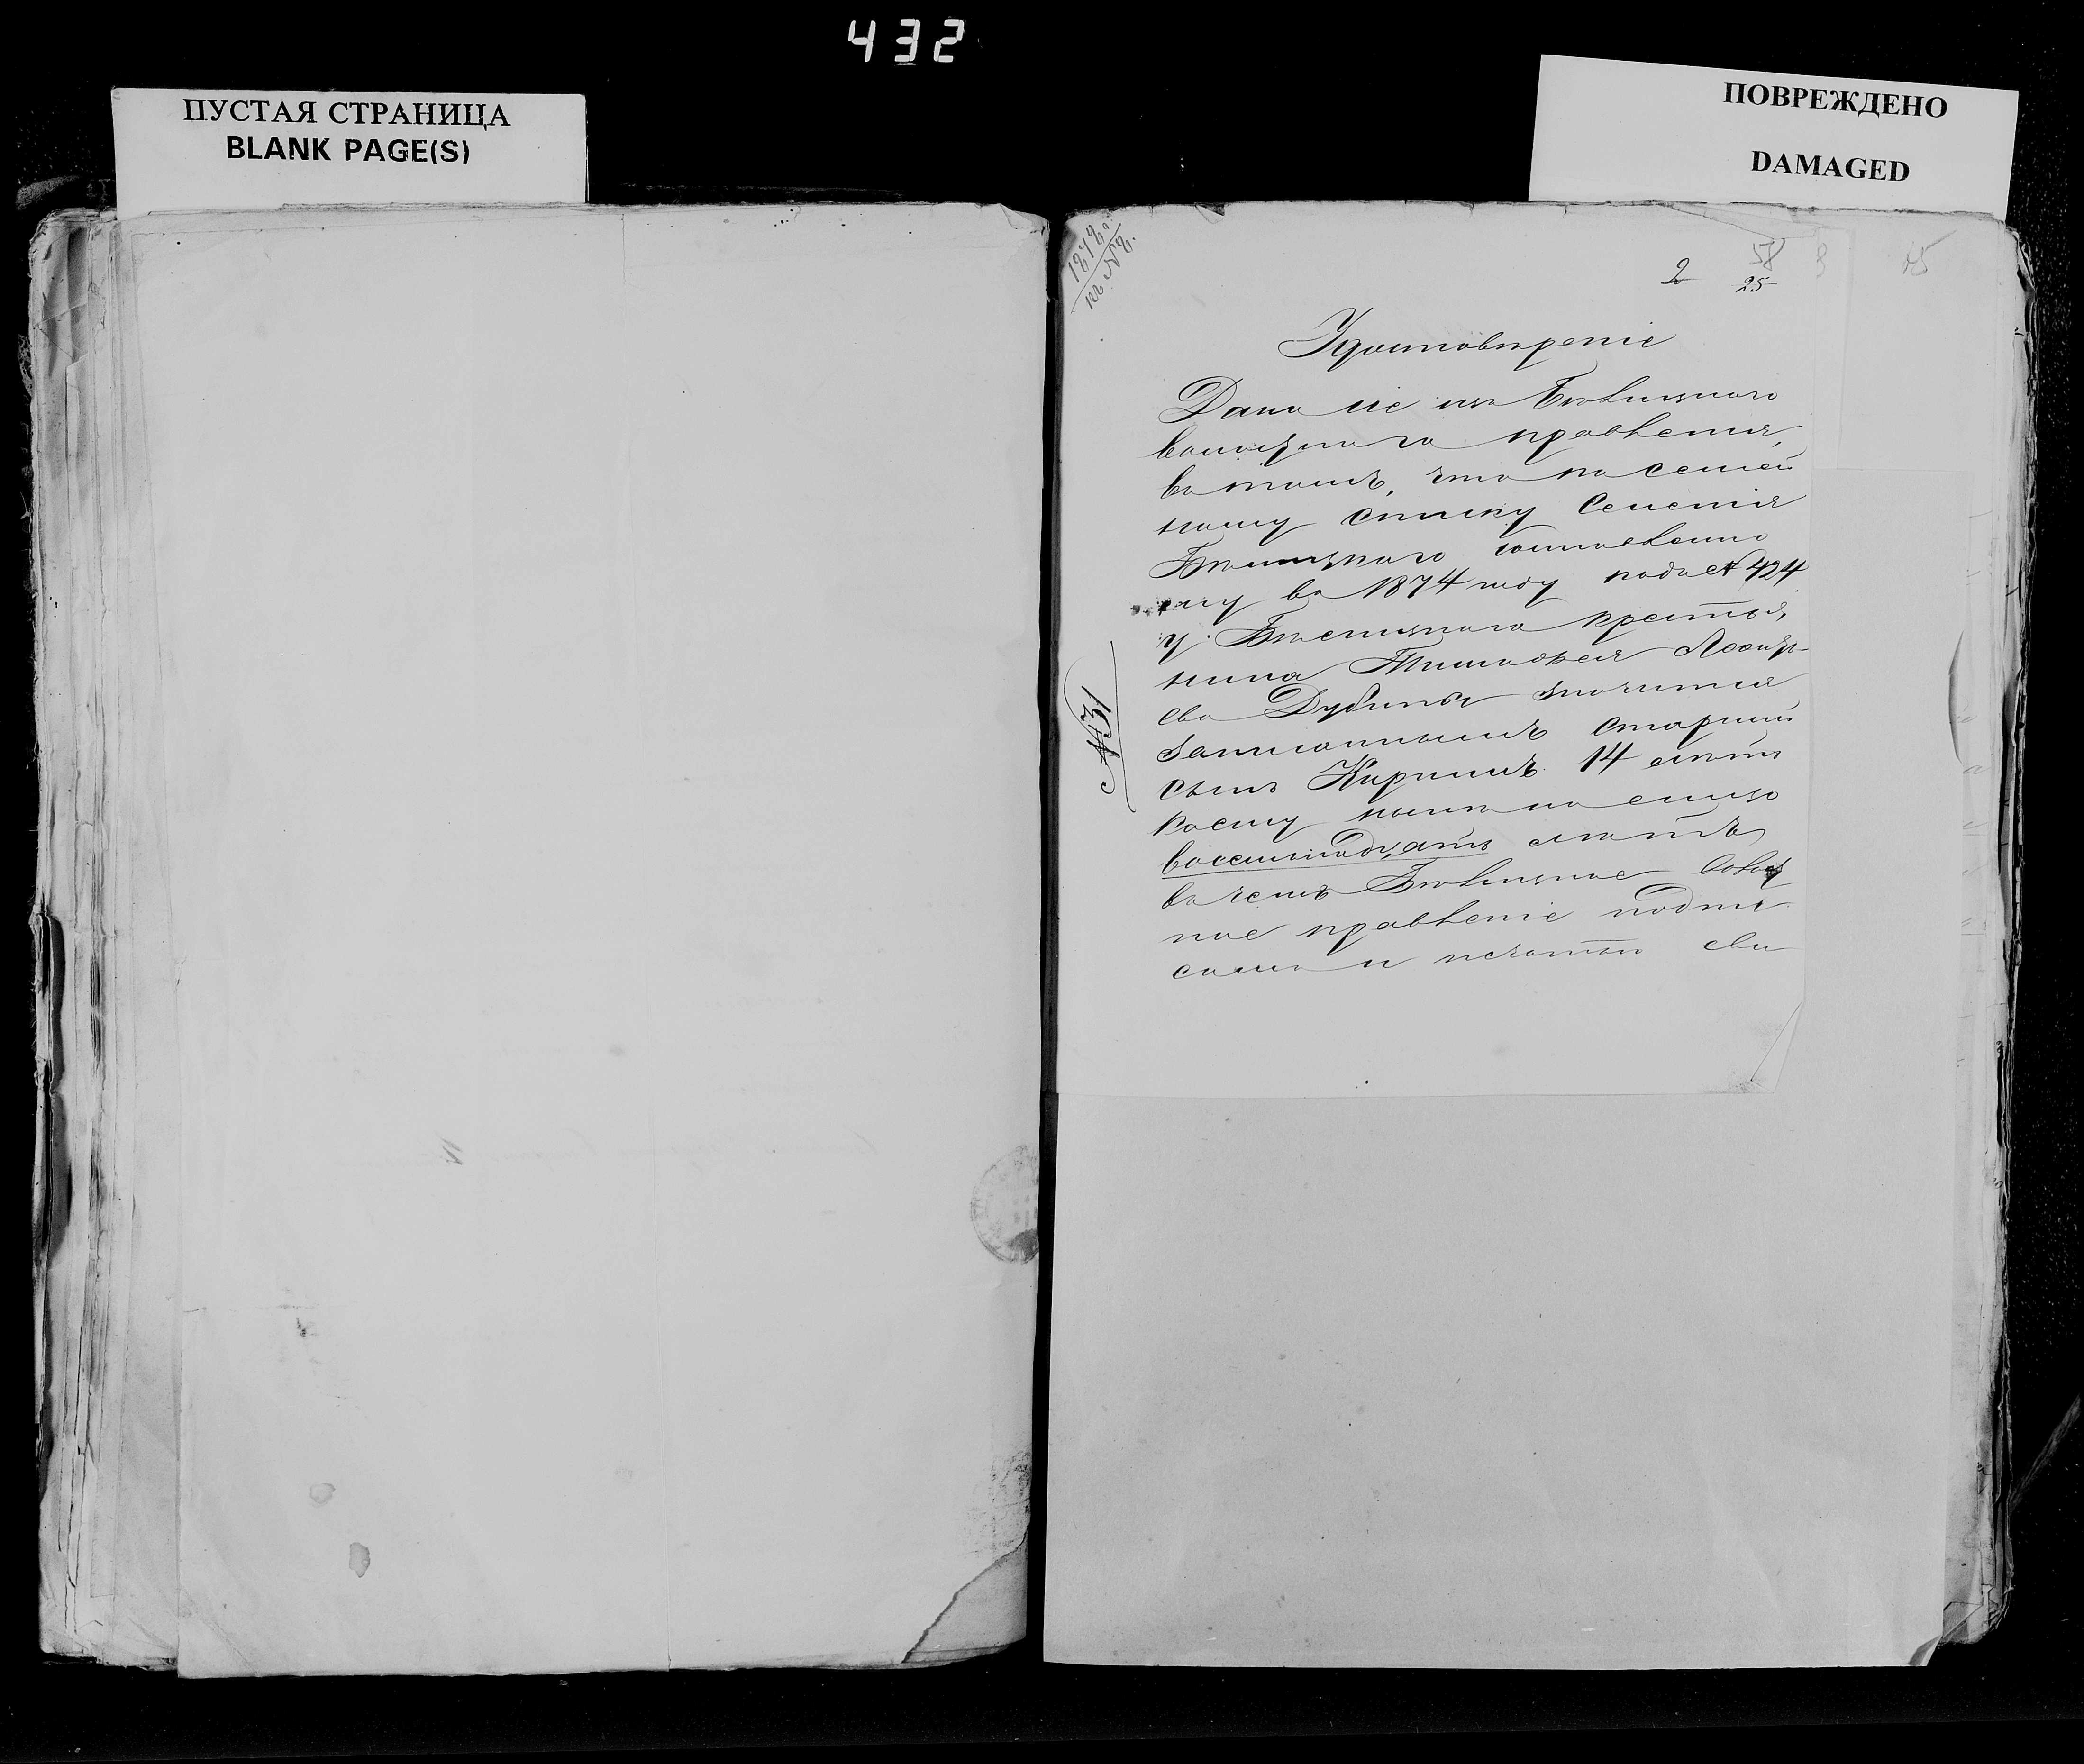 432
ПУСТАЯ СТРАНИЦА
BLANK PAGE(S)
ПОВРЕЖДЕНО
DAMAGED
1878
къ № 8.
2 58
25
45
Удостовѣреніе
Дано сіе изъ
волостнаго правленія,
въ томъ, что по семей
ному списку Селенія
составленно
му въ 1874 году подъ № 424
у крестья,
нина Тимофея
ева Дубины значится
записаннымъ старшій
сынъ Кирилъ 14 лѣтъ
коему нынѣ
восемнадцать лѣтъ
въ чемъ Волост
ное правленіе подпи
сомъ и печатью сви
№ 31